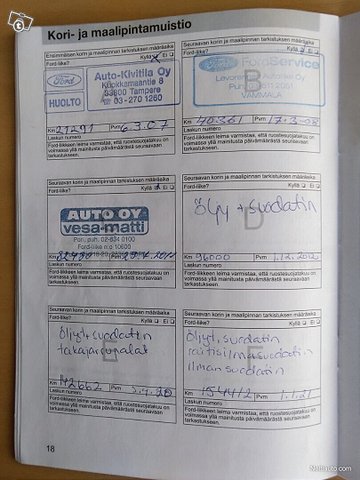 Kori- ja maalipintamuistio
Ensimmäisen korin ja maalipinnan tarkistuksen määräaika
Ford-liike? Kyllä Ei
Ford
HUOLTO
Auto-Kivitila Oy
33800 Tampere
03-270 1260
Km 21291 Pvm 6.3.07
Laskun numero
Ford-liikkeen leima varmistaa, että ruostesuojatakuu on
voimassa yllä mainitusta päivämäärästä seuraavaan
tarkastukseen.
Seuraavan korin ja maalipinnan tarkistuksen määräaika
Ford-liike? Kyllä Ei
Ford FordService
B
VAMMALA
Km 40361 Pvm 17.3.08
Laskun numero
Ford-liikkeen leima varmistaa, että ruostesuojatakuu on
voimassa yllä mainitusta päivämäärästä seuraavaan
tarkastukseen.
Seuraavan korin ja maalipinnan tarkistuksen määräaika
Ford-liike? Kyllä Ei
AUTO OY
vesa-matti
Pori, puh. 02-634 0100
Km Pvm
Laskun numero
Ford-liikkeen leima varmistaa, että ruostesuojatakuu on
voimassa yllä mainitusta päivämäärästä seuraavaan
tarkastukseen.
Seuraavan korin ja maalipinnan tarkistuksen määräaika
Öljy + suodatin
D
Km 96000 Pvm 1.12.2012
Laskun numero
Ford-liikkeen leima varmistaa, että ruostesuojatakuu on
voimassa yllä mainitusta päivämäärästä seuraavaan
tarkastukseen.
Seuraavan korin ja maalipinnan tarkistuksen määräaika
Ford-liike? Kyllä Ei
öljyt, suodatin
takajarrupalat
Km 142662 Pvm
Laskun numero
Ford-liikkeen leima varmistaa, että ruostesuojatakuu on
voimassa yllä mainitusta päivämäärästä seuraavaan
tarkastukseen.
Seuraavan korin ja maalipinnan tarkistuksen määräaika
Ford-liike? Kyllä Ei
öljyt, suodatin
raitisilmasuodatin
ilman suodatin
Km 154412 Pvm 1.1.21
Laskun numero
Ford-liikkeen leima varmistaa, että ruostesuojatakuu on
voimassa yllä mainitusta päivämäärästä seuraavaan
tarkastukseen.
18
Nettiauto.com